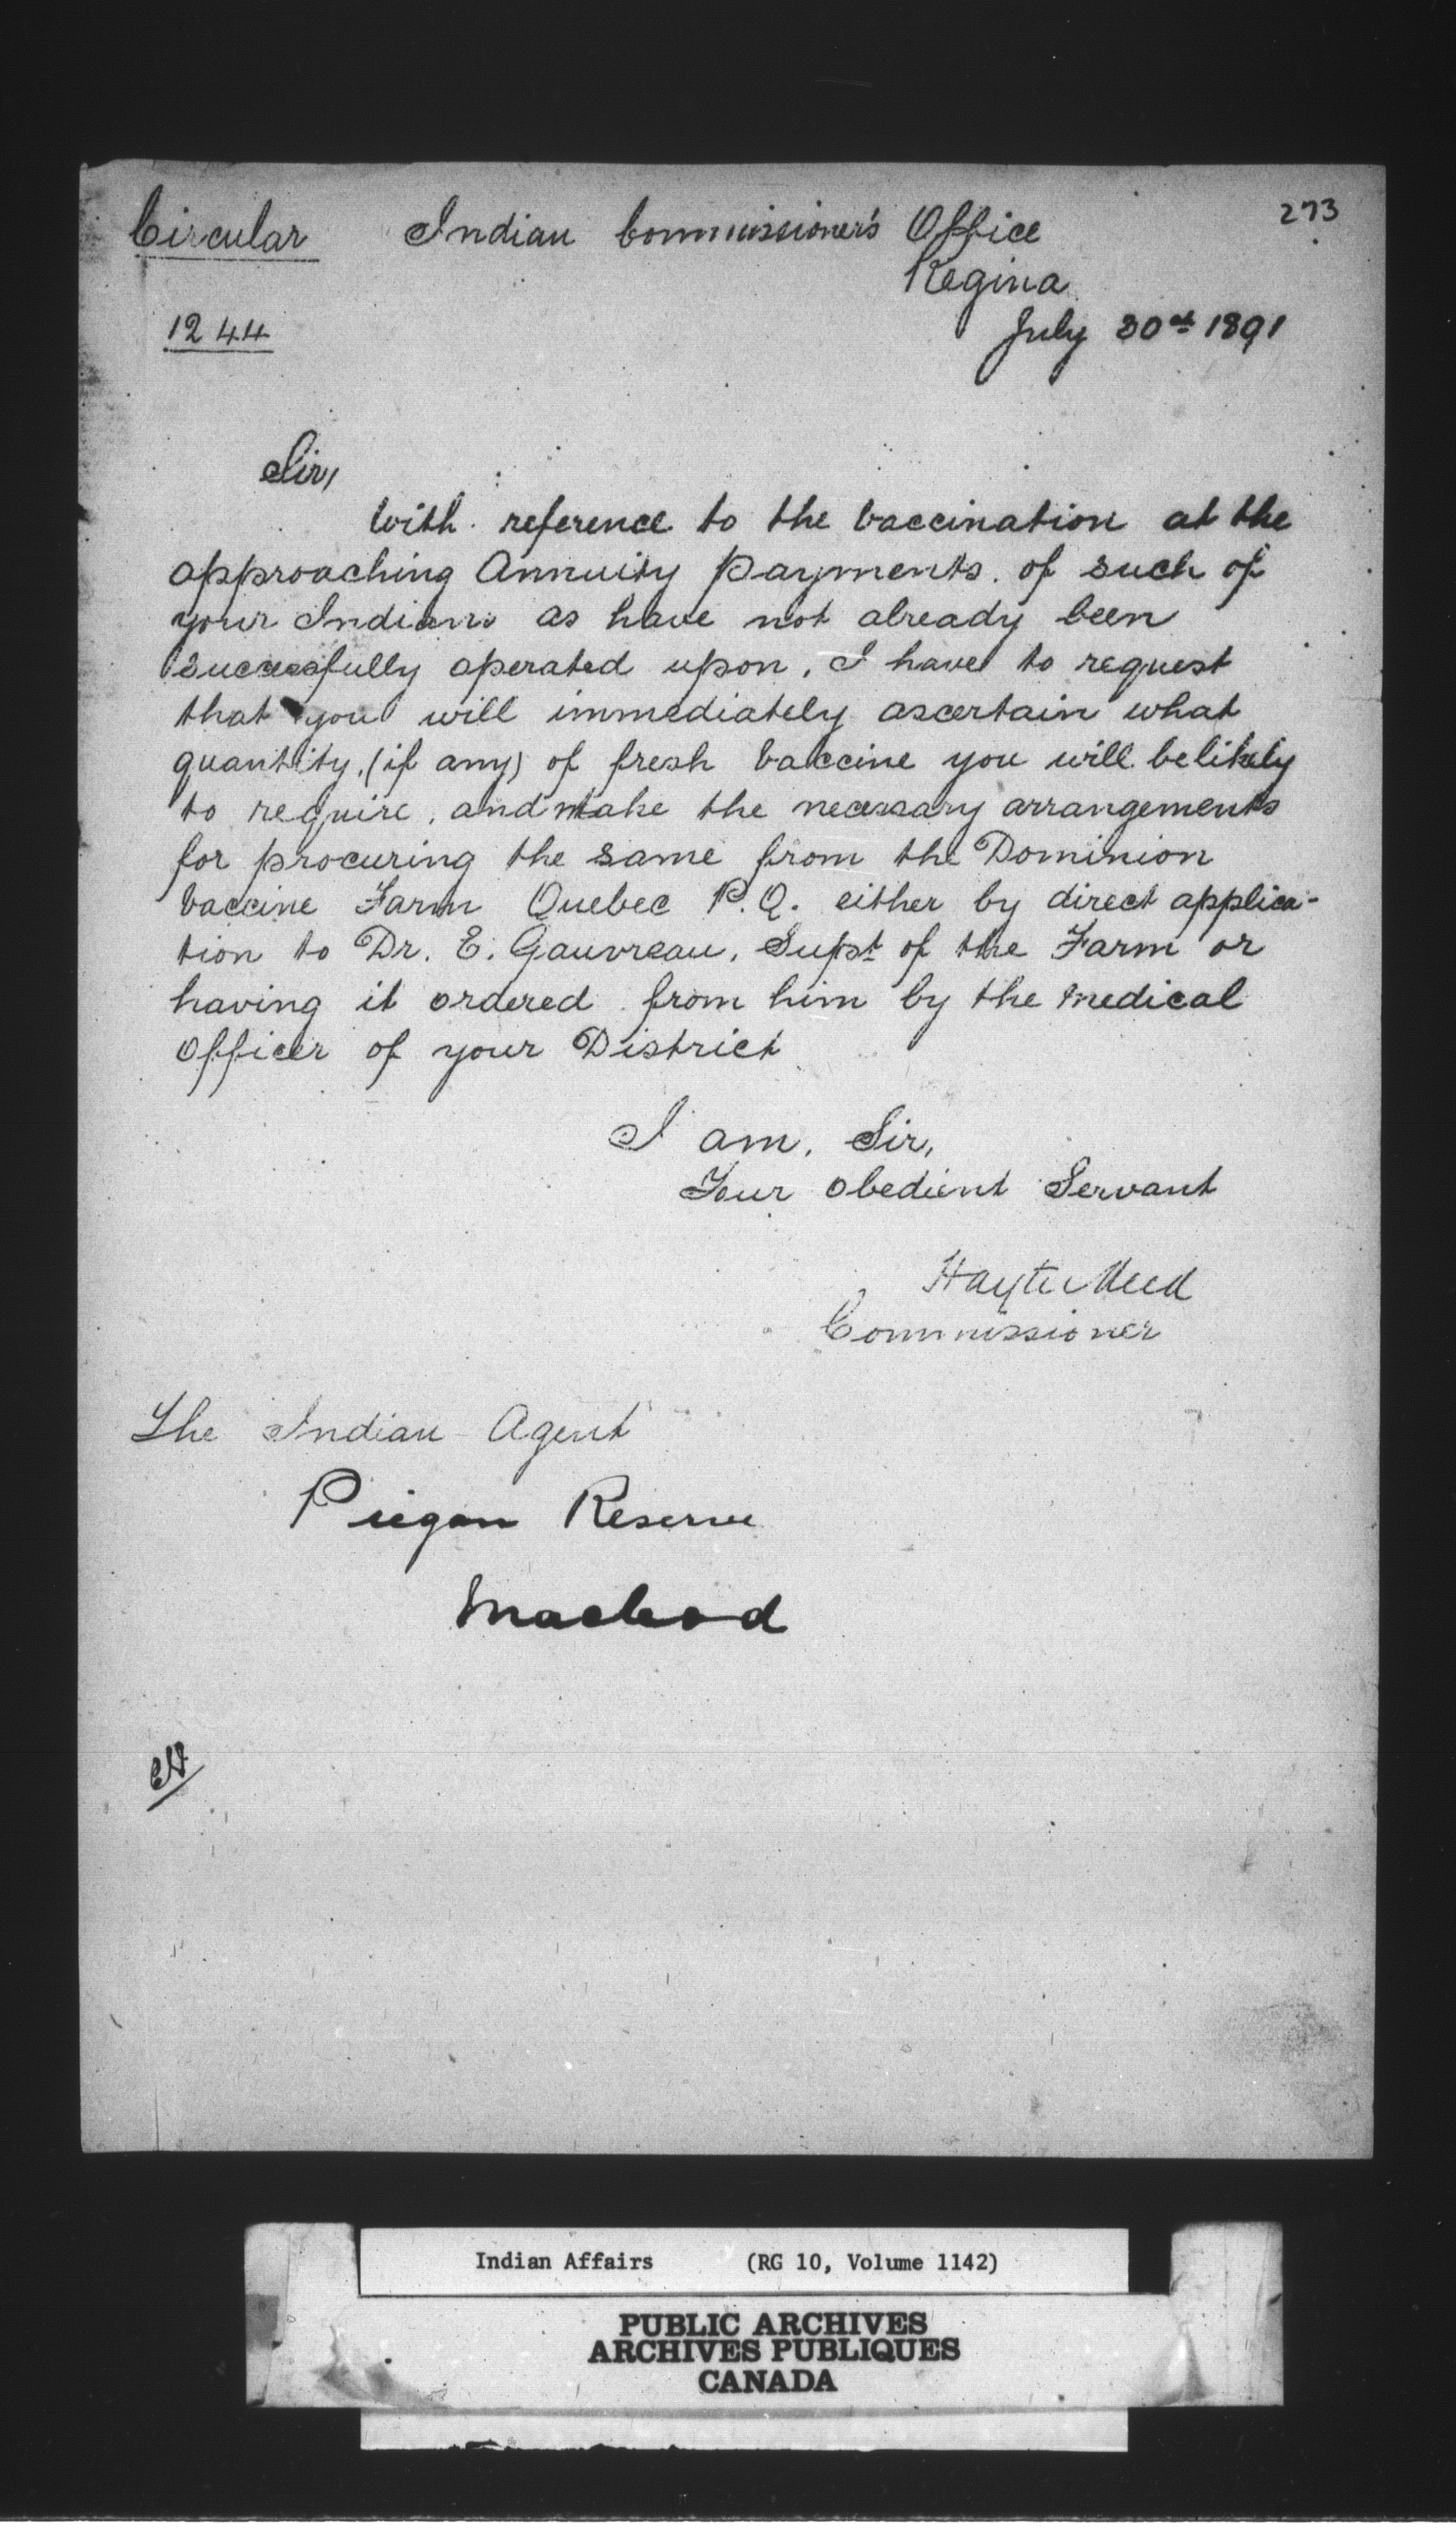 273
Circular Indian Commissioner's Office
Regina
1244
July 30th 1891
Sir,
With reference to the vaccination at the
approaching Annuity Payments. of such of
your Indians as have not already been
successfully operated upon, I have to request
that you will immediately ascertain what
quantity, (if any) of fresh vaccine you will be likely
to require, and make the necessary arrangements
for procuring the same from the Dominion
Vaccine Farm Quebec P.Q. either by direct applica-
tion to Dr. E. Gauvreau, Supt of the Farm or
having it ordered from him by the Medical
Officer of your District
I am, Sir,
Your obedient Servant
Hayter Reed
Commissioner
The Indian Agent
Piegan Reserve
Macleod
Indian Affairs (RG 10, Volume 1142)
PUBLIC ARCHIVES
ARCHIVES PUBLIQUES
CANADA